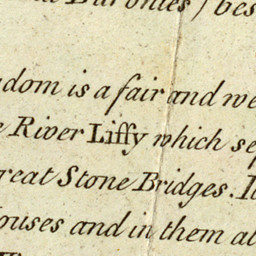 Baronies) bes
dom is a fair and we
River Liffy which sep
reat Stone Bridges. I
ouses and in them ab